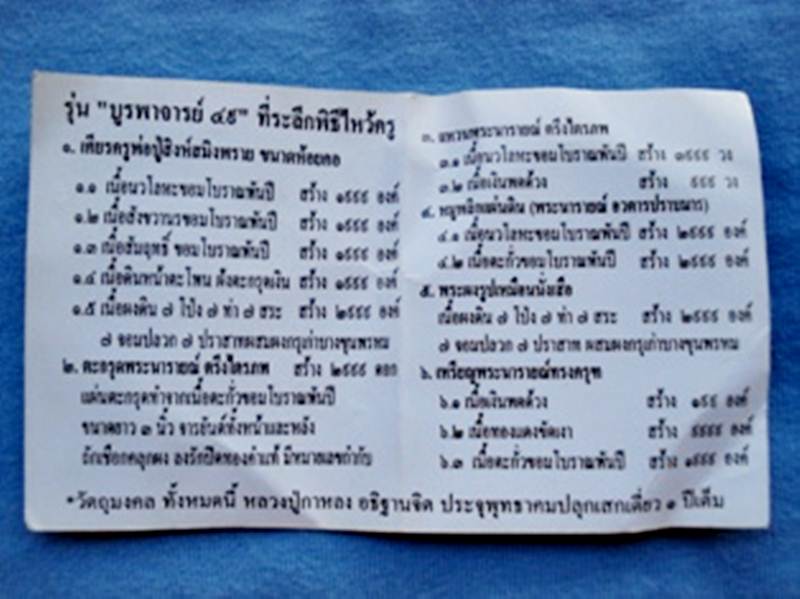 รุ่น "บูรพาจารย์ ๔๙" ที่ระลึกพิธีไหว้ครู
๑. เศียรครูพ่อปู่สิงห์สมิงพราย ขนาดห้อยคอ
๑.๑ เนื้อนวโลหะขอมโบราณพันปี สร้าง ๑๙๙๙ องค์
๑.๒ เนื้อสังขวานรขอมโบราณพันปี สร้าง ๑๙๙๙ องค์
๑.๓ เนื้อสัมฤทธิ์ ขอมโบราณพันปี สร้าง ๑๙๙๙ องค์
๑.๔ เนื้อดินหน้าตะโพน ฝังตะกรุดเงิน สร้าง ๑๙๙๙ องค์
๑.๕ เนื้อผงดิน ๗ โป่ง ๗ ท่า ๗ สระ สร้าง ๒๙๙๙ องค์
๗ จอมปลวก ๗ ปราสาทผสมผงกรุเก่าบางขุนพรหม
๒. ตะกรุดพระนารายณ์ ตรึงไตรภพ สร้าง ๒๙๙๙ ดอก
แผ่นตะกรุดทำจากเนื้อตะกั่วขอมโบราณพันปี
ขนาดยาว ๓ นิ้ว จารยันต์ทั้งหน้าและหลัง
ถักเชือกคลุกผง ลงรักปิดทองคำแท้ มีหมายเลขกำกับ
๓. แหวนพระนารายณ์ ตรึงไตรภพ
๓.๑ เนื้อนวโลหะขอมโบราณพันปี สร้าง ๓๙๙๙ วง
๓.๒ เนื้อเงินพดด้วง สร้าง ๙๙๙ วง
๔. หมูพลิกแผ่นดิน (พระนารายณ์ อวตารปราบมาร)
๔.๑ เนื้อนวโลหะขอมโบราณพันปี สร้าง ๒๙๙๙ องค์
๔.๒ เนื้อตะกั่วขอมโบราณพันปี สร้าง ๒๙๙๙ องค์
๕. พระผงรูปเหมือนนั่งเสือ
เนื้อผงดิน ๗ โป่ง ๗ ท่า ๗ สระ สร้าง ๒๙๙๙ องค์
๗ จอมปลวก ๗ ปราสาท ผสมผงกรุเก่าบางขุนพรหม
๖. เหรียญพระนารายณ์ทรงครุฑ
๖.๑ เนื้อเงินพดด้วง สร้าง ๑๙๙ องค์
๖.๒ เนื้อทองแดงขัดเงา สร้าง ๙๙๙๙ องค์
๖.๓ เนื้อตะกั่วขอมโบราณพันปี สร้าง ๑๙๙๙ องค์
*วัตถุมงคล ทั้งหมดนี้ หลวงปู่กาหลง อธิฐานจิต ประจุพุทธาคมปลุกเสกเดี่ยว ๑ ปีเต็ม